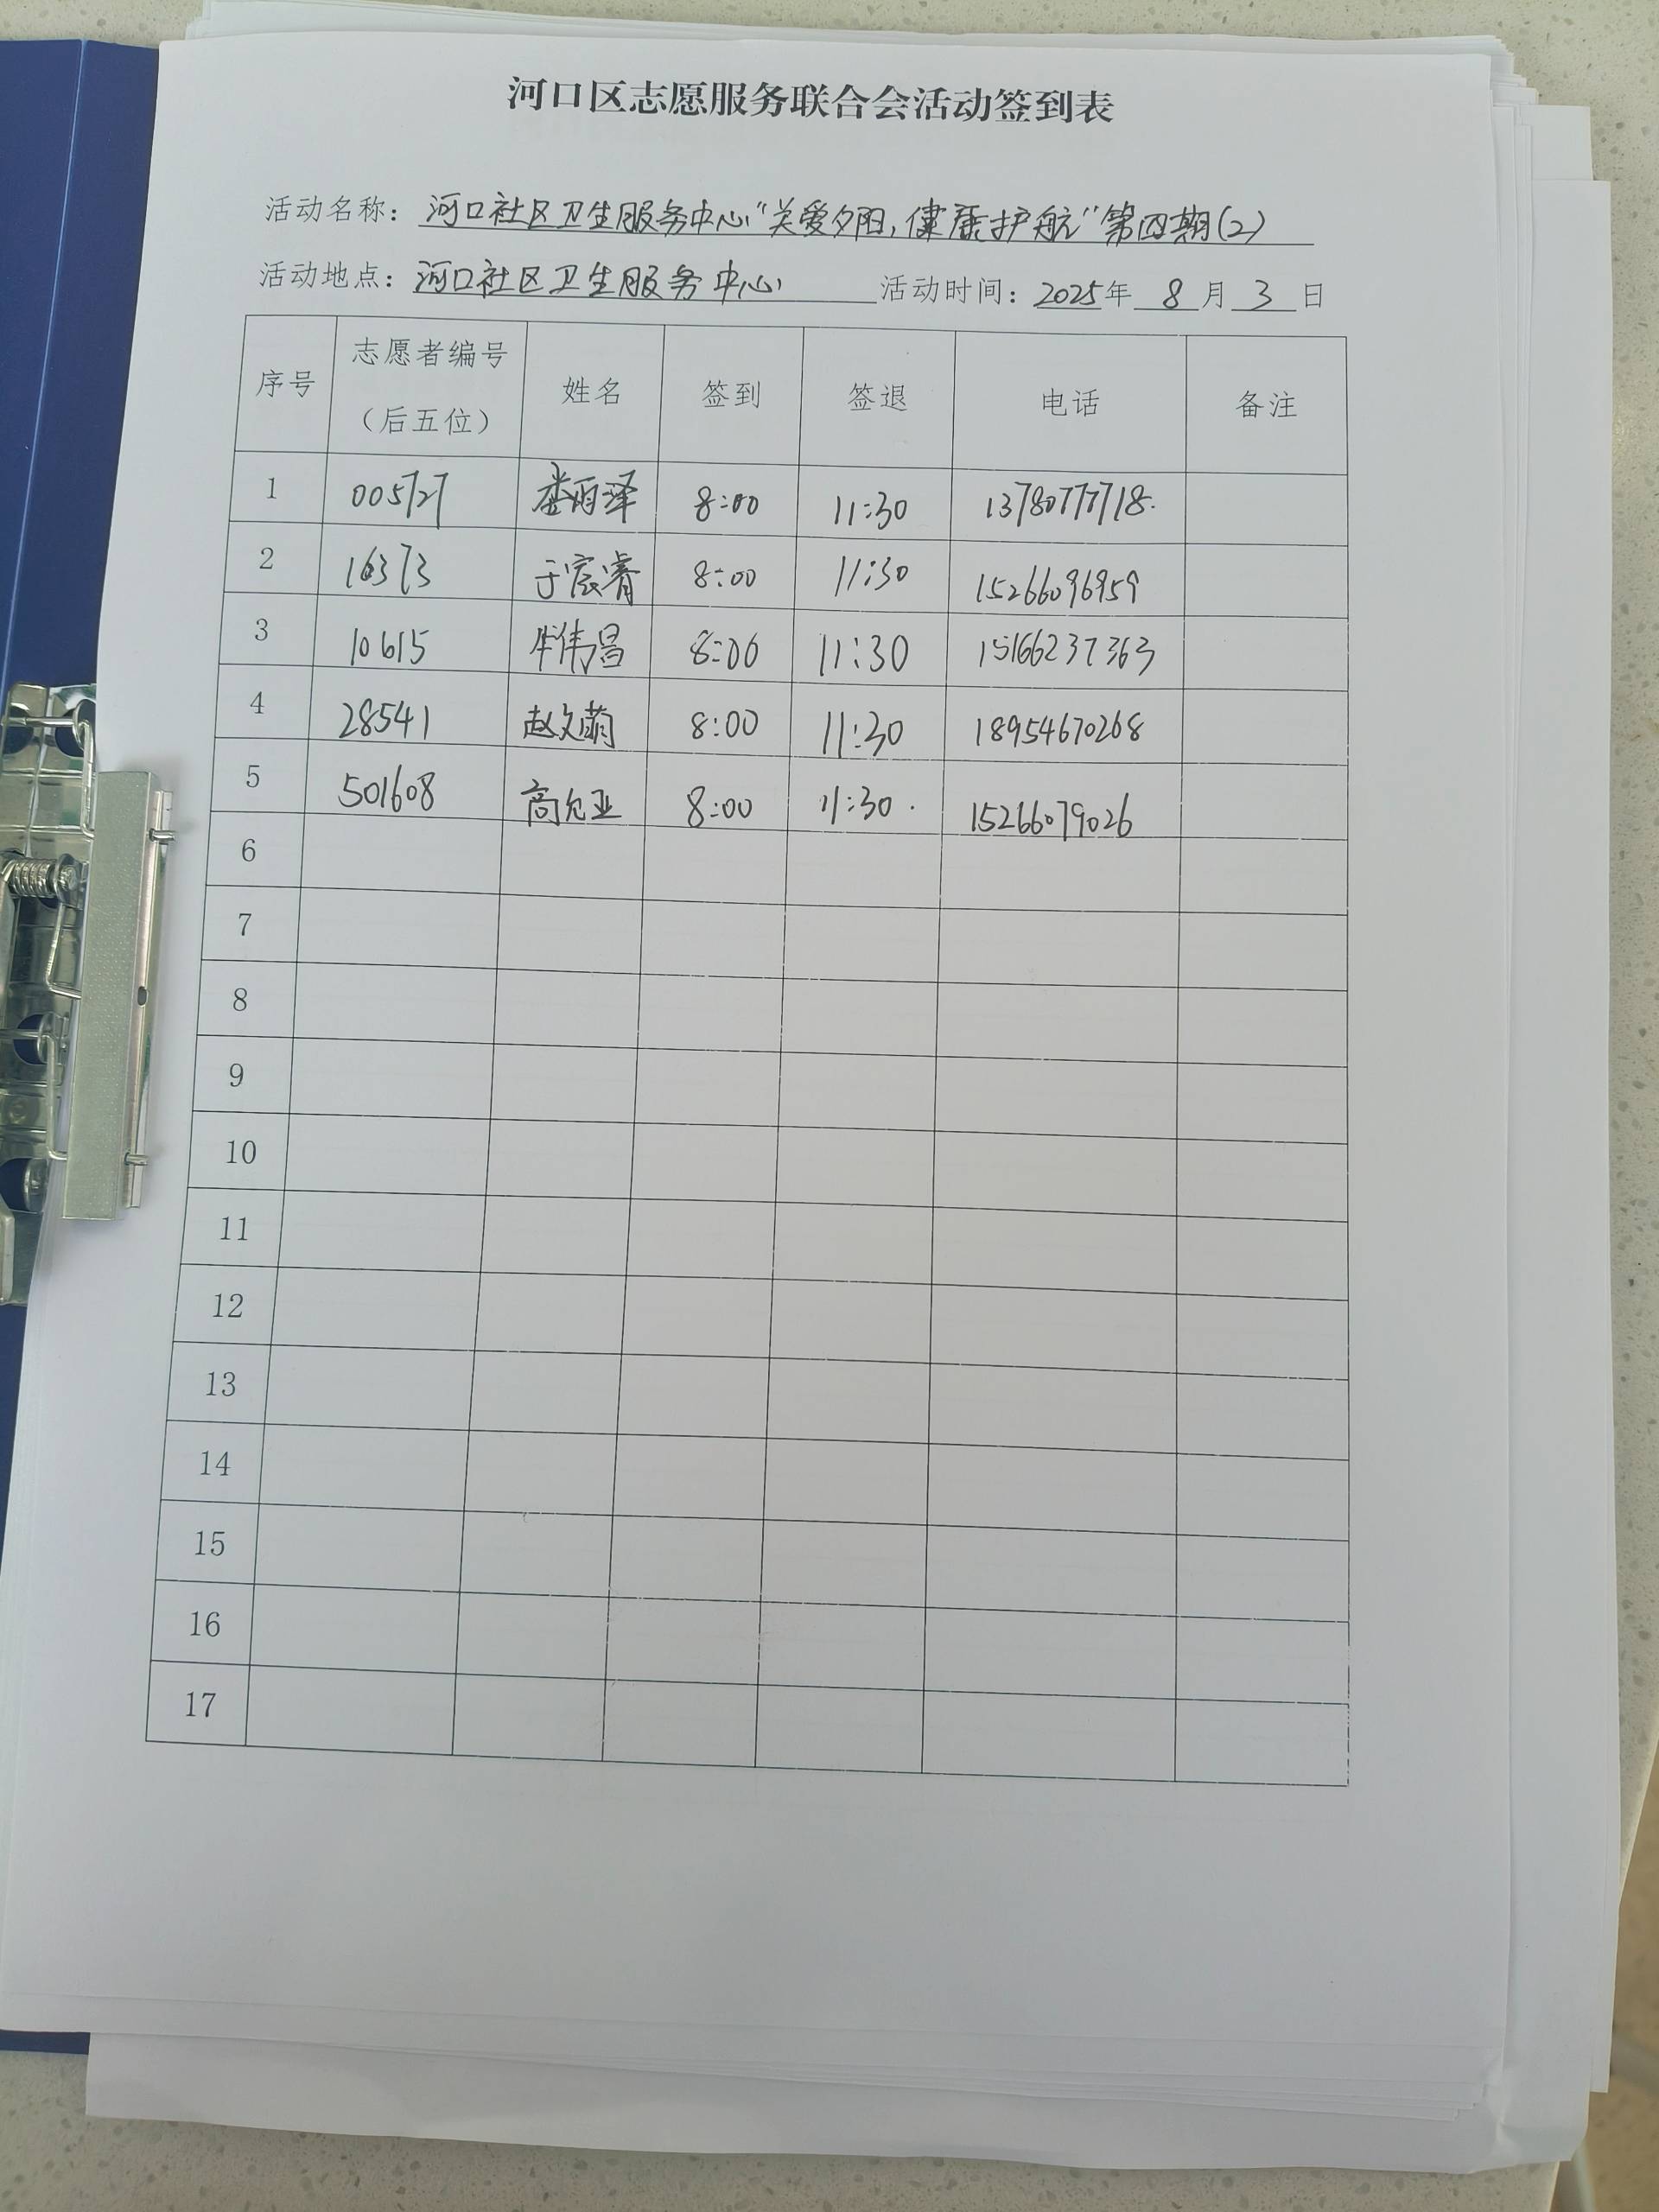 河口区志愿服务联合会活动签到表
活动名称: 河口社区卫生服务中心“关爱夕阳,健康护航”第四期(2)
活动地点: 河口社区卫生服务中心 活动时间: 2025年 8 月 3 日
序号 志愿者编号（后五位） 姓名 签到 签退 电话 备注
1 005727 娄雨泽 8:00 11:30 13780777718.
2 16373 于宸睿 8:00 11:30 15266096959
3 10615 牟伟昌 8:00 11:30 15166237363
4 28541 赵文萌 8:00 11:30 18954670268
5 501608 高允亚 8:00 11:30. 15266079026
6
7
8
9
10
11
12
13
14
15
16
17